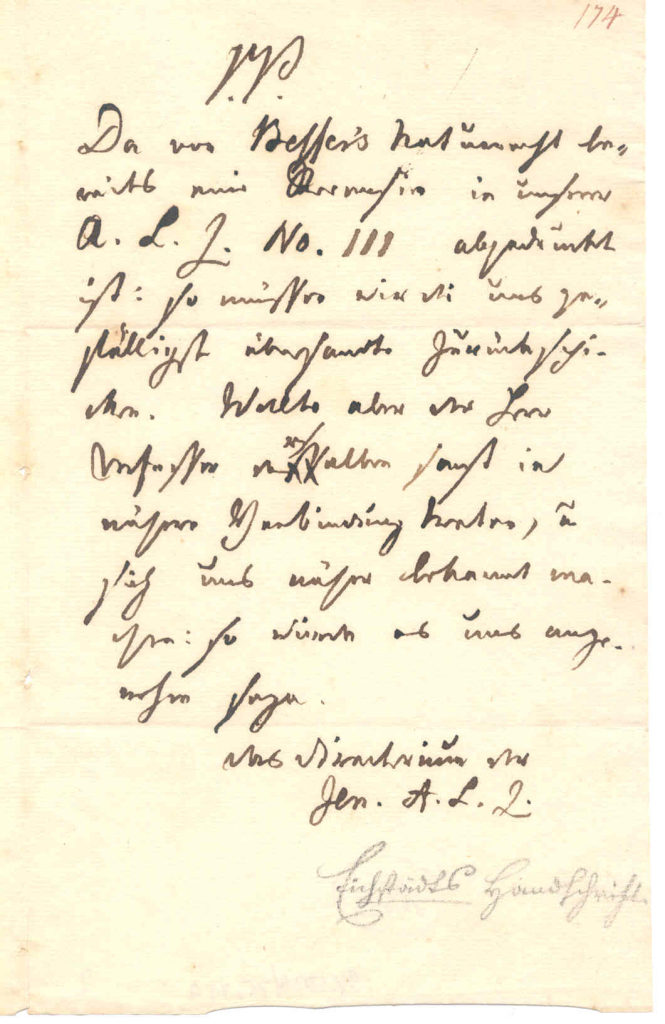 174
P. P.
Da von Besser's Naturrecht be-
reits eine Recension in unserer
A. L. Z. No. 111 abgedruckt
ist: so müssen wir die uns ge-
fälligst übersandte zurückschi-
cken. Wollte aber der Herr
Verfasser derselben sonst in
nähere Verbindung treten, u
sich uns näher bekannt ma-
chen: so würde es uns ange-
nehm seyn.
das Directorium der
Jen. A. L. Z.
Eichstädts Handschrift.